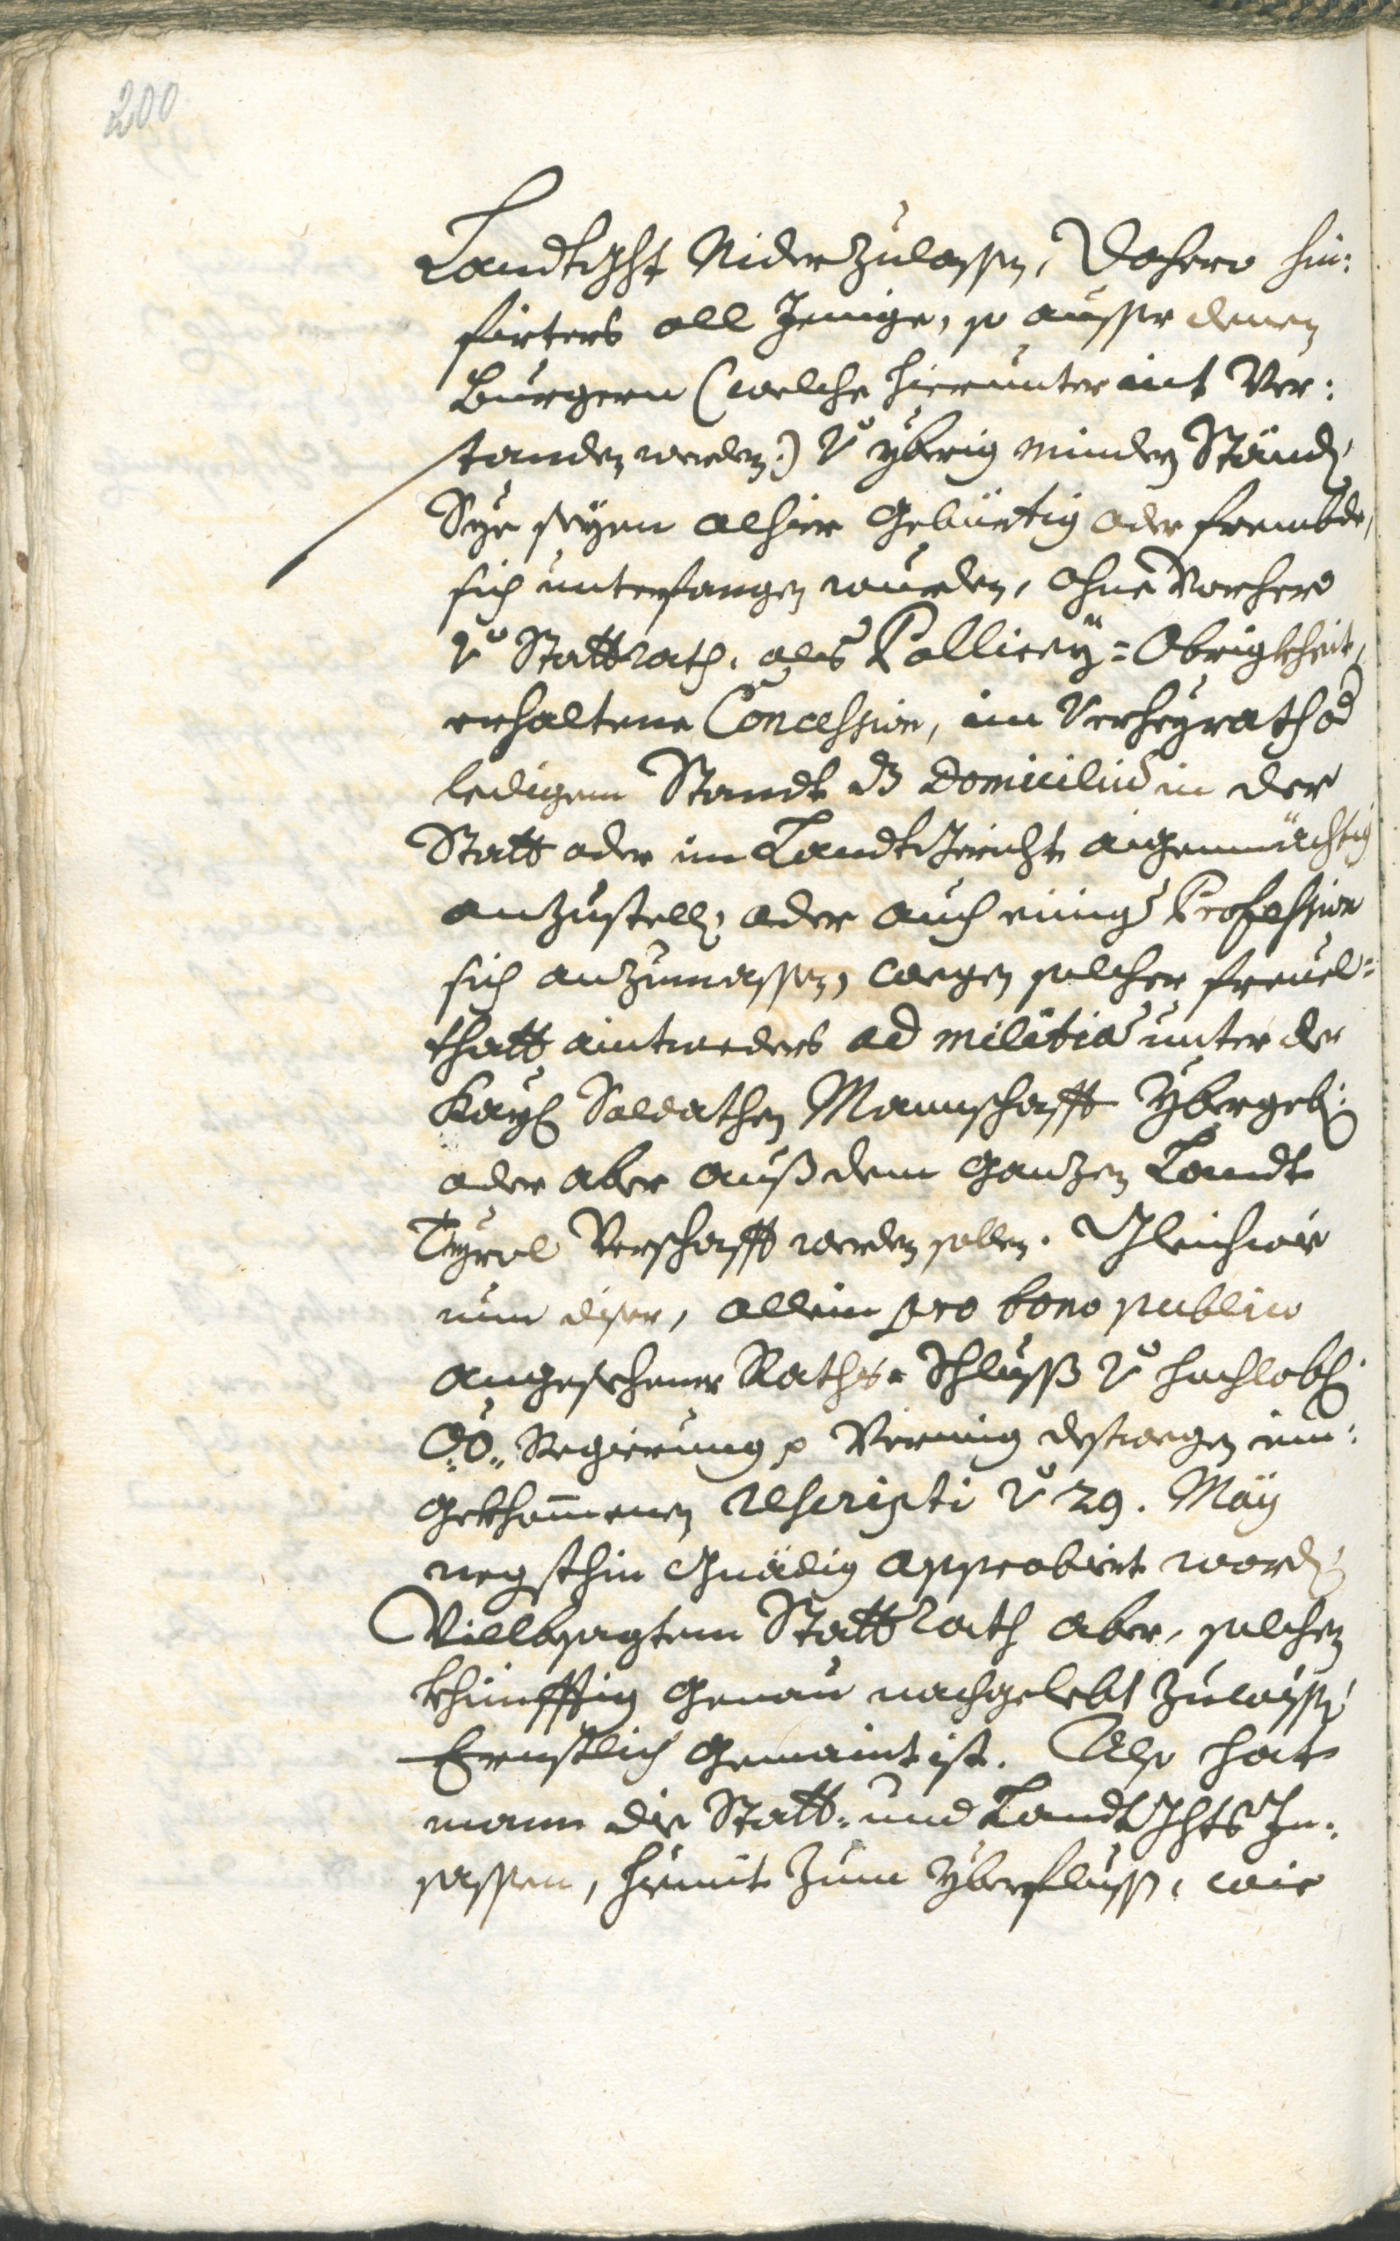 200
Landtght Niderzulassen, Dahero hin:
firters all Jenige, so ausser denen
Burgern (welche hierunter nit Ver:
standen werden:) v̊ ybrig mindern Ständ
Sye seyen alhier gebürtig oder frembde,
sich unterfangen wurden, ohne Vorhero
v̊ Stattrath, als Pollicey=Obrigkheit,
erhaltene Concession, im Verheyrath od
ledigem Standt dz Domiciliū in der
Statt oder im Landtgericht aigenmächtig
anzustelln, oder auch einige Profession
sich anzumassen, wegen solcher freuel=
thatt aintweders ad militiā unter der
Kayl Soldathen Mannschafft ybergebn:
oder aber auß dem ganzen Landt
Tyrol Verschafft werden sollen. Gleichwie
nun diser, allein pro bono publico
angesehener Raths=Schlusß v̊ hochlobl:
O:Ö: Regierung Vermig destwegen ein:
gekhom̅enen Rescripti v̊ 29. Maÿ
negsthin gnädig approbirt wordn,
Villbesagtem Stattrath aber, solchen
khünfftig genau nachgelebt zulassn,
Ernstlich gemaint ist. Also hat
mann die Statt= und Landtghts In:
sassen, hiemit zum yberfluss, wie